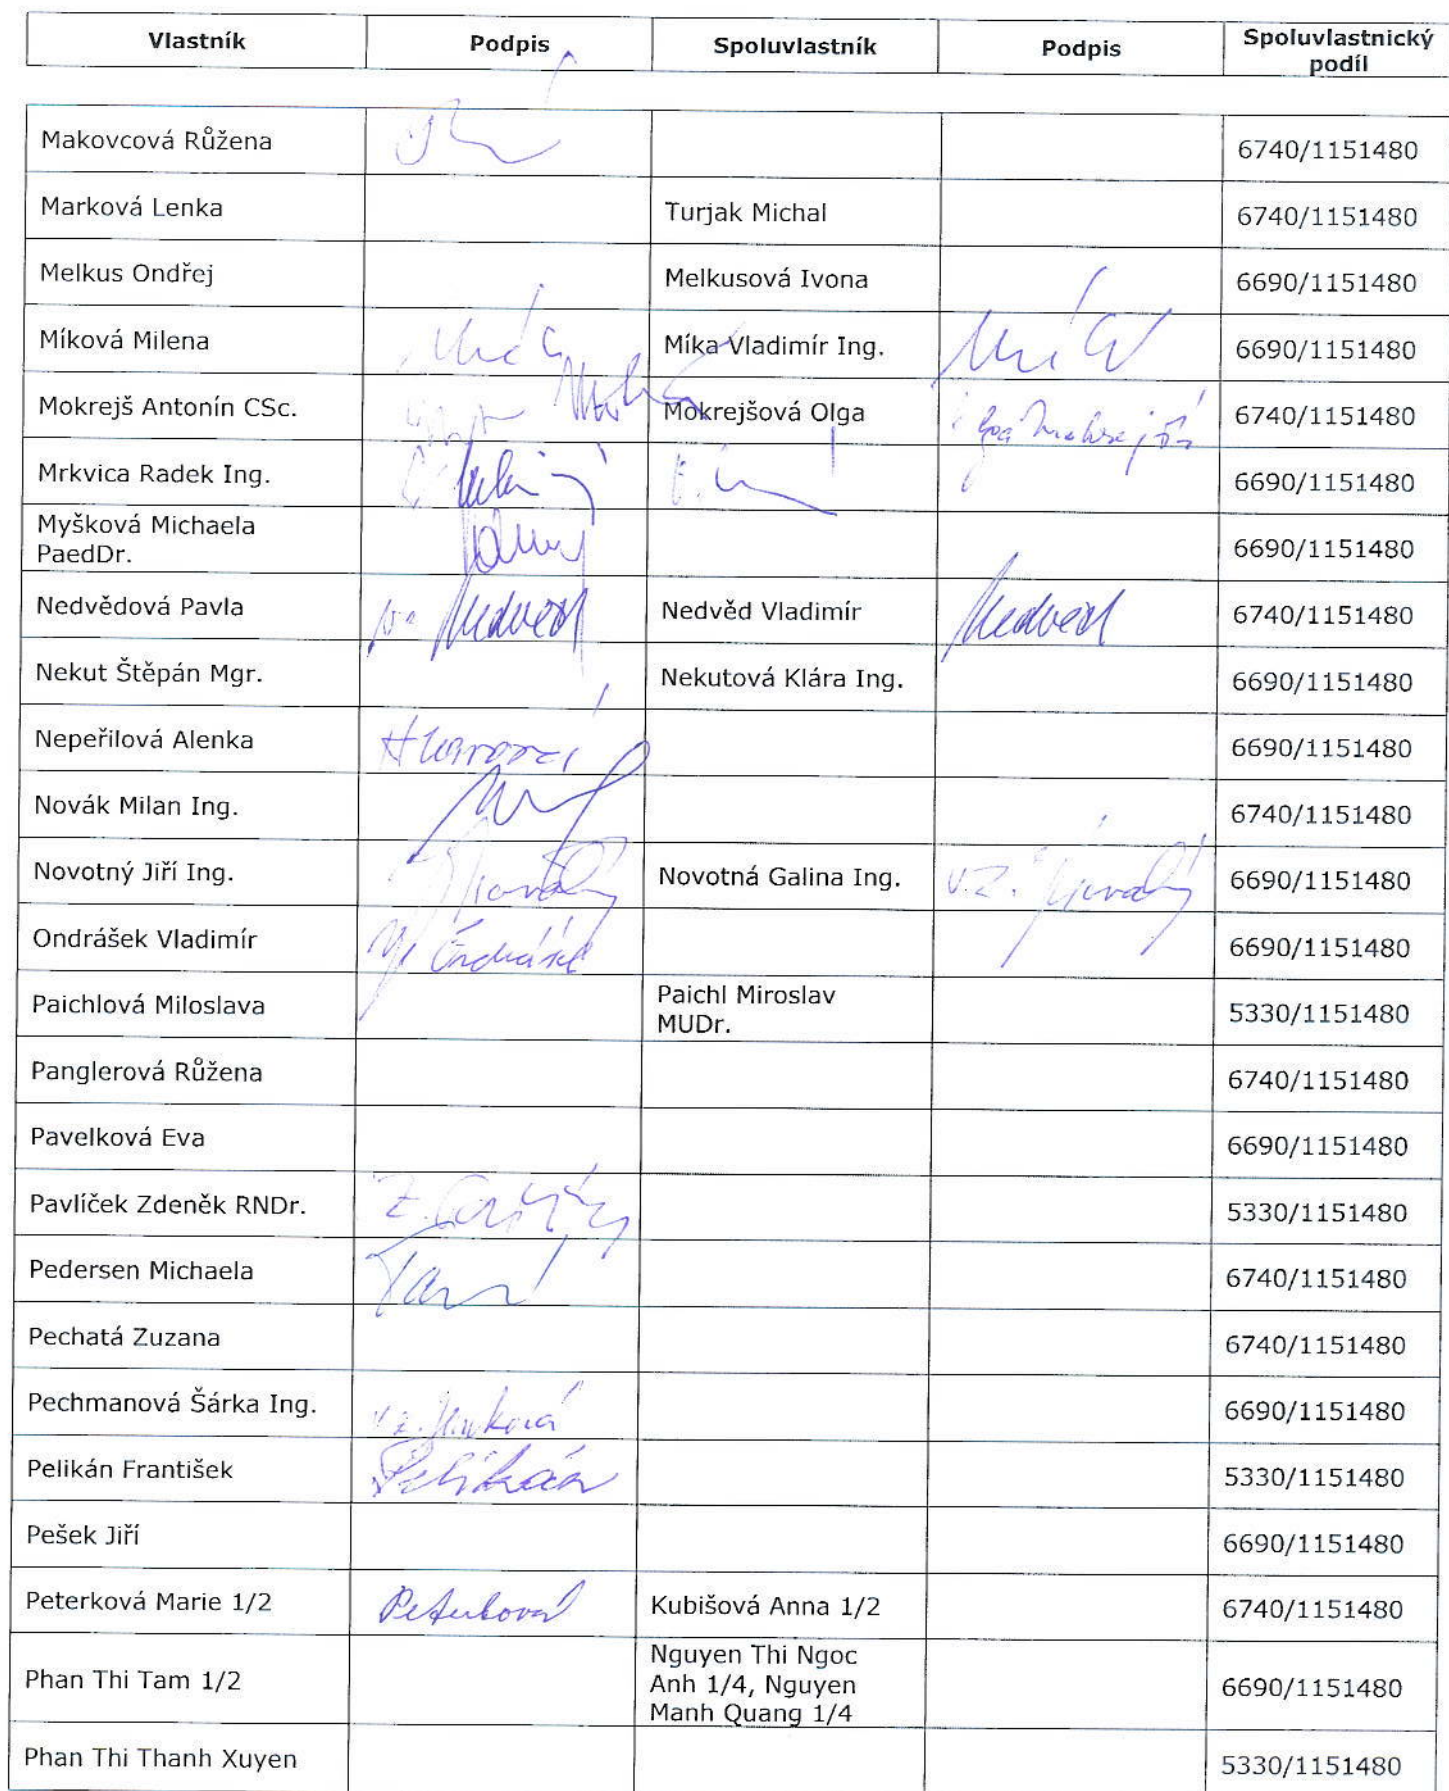 Vlastník Podpis Spoluvlastník Podpis Spoluvlastnický
podíl
Makovcová Růžena 6740/1151480
Marková Lenka Turjak Michal 6740/1151480
Melkus Ondřej Melkusová Ivona 6690/1151480
Míková Milena Míka Vladimír Ing. 6690/1151480
Mokrejš Antonín CSc. Mokrejšová Olga 6740/1151480
Mrkvica Radek Ing. 6690/1151480
Myšková Michaela
PaedDr. 6690/1151480
Nedvědová Pavla Nedvěd Nedvěd Vladimír Nedvěd 6740/1151480
Nekut Štěpán Mgr. Nekutová Klára Ing. 6690/1151480
Nepeřilová Alenka 6690/1151480
Novák Milan Ing. 6740/1151480
Novotný Jiří Ing. Novotná Galina Ing. v.z. 6690/1151480
Ondrášek Vladimír Ondrášek 6690/1151480
Paichlová Miloslava Paichl Miroslav
MUDr. 5330/1151480
Panglerová Růžena 6740/1151480
Pavelková Eva 6690/1151480
Pavlíček Zdeněk RNDr. 5330/1151480
Pedersen Michaela 6740/1151480
Pechatá Zuzana 6740/1151480
Pechmanová Šárka Ing. 6690/1151480
Pelikán František Pelikán 5330/1151480
Pešek Jiří 6690/1151480
Peterková Marie 1/2 Peterková Kubišová Anna 1/2 6740/1151480
Phan Thi Tam 1/2 Nguyen Thi Ngoc
Anh 1/4, Nguyen
Manh Quang 1/4 6690/1151480
Phan Thi Thanh Xuyen 5330/1151480